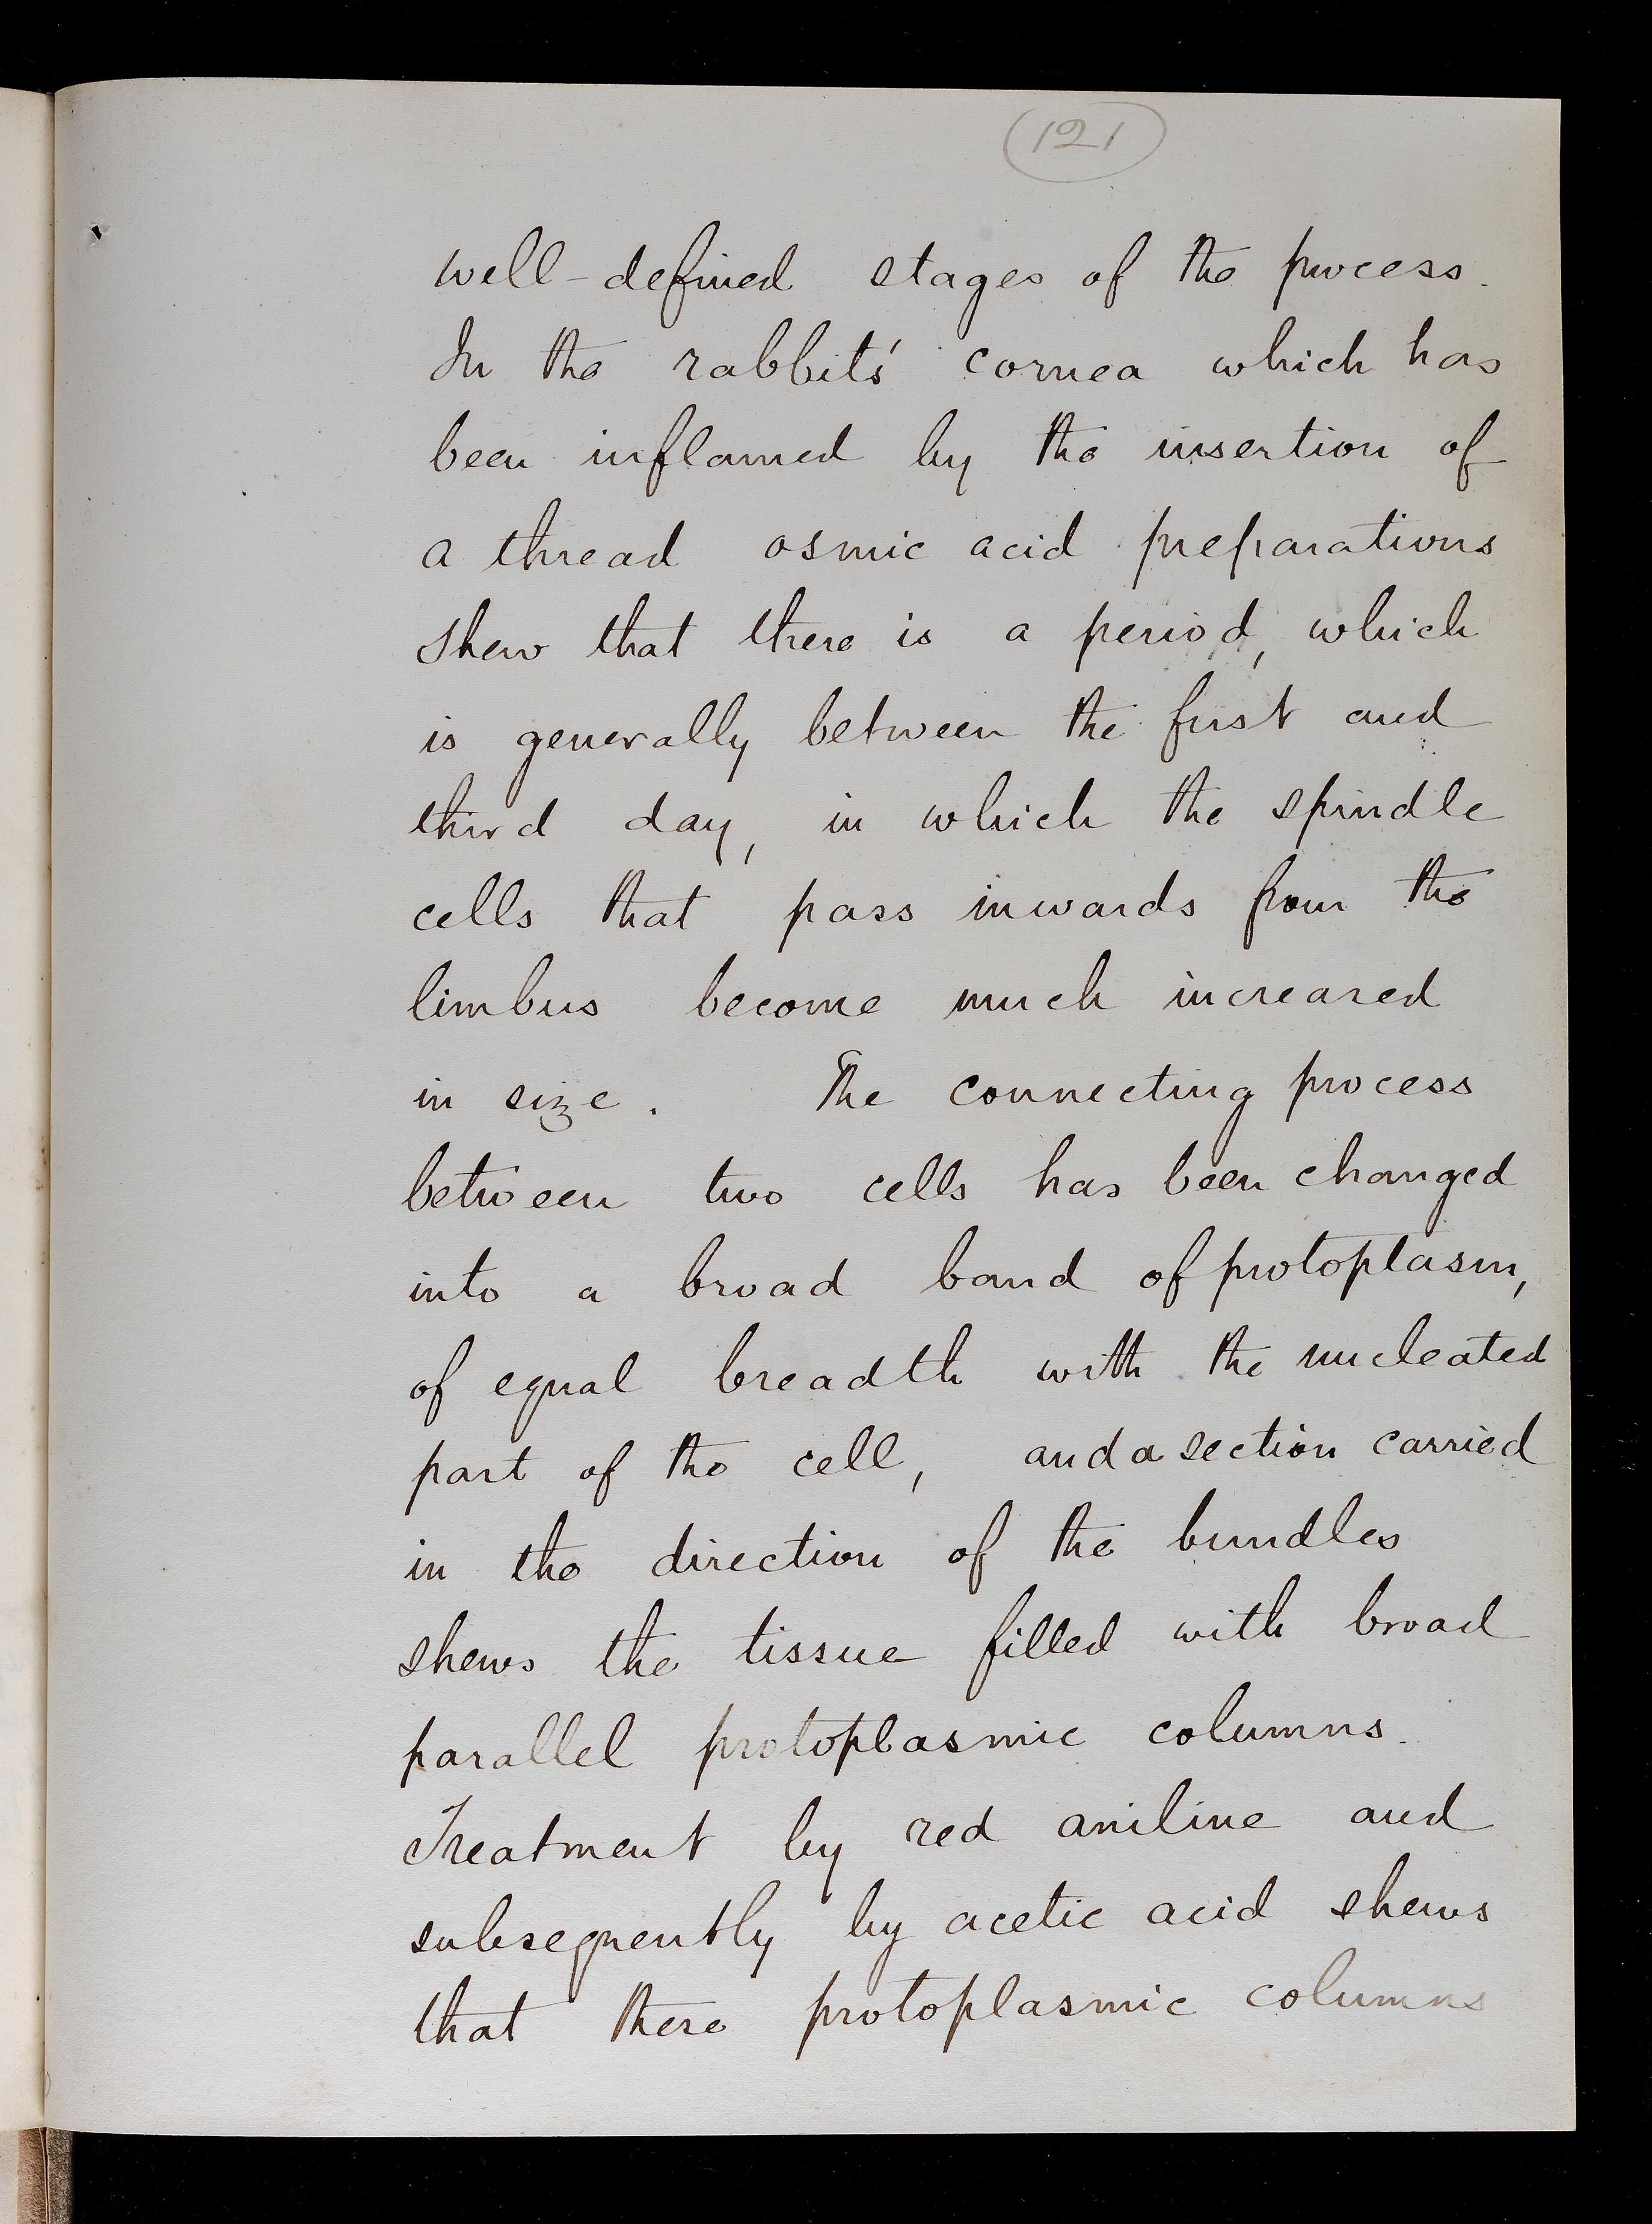 121
well-defined stages of the process.
In the rabbit's cornea which has
been inflamed by the insertion of
a thread osmic acid preparations
shew that there is a period, which
is generally between the first and
third day, in which the spindle
cells that pass inwards from the
limbus become much increased
in size. The connecting process
between two cells has been changed
into a broad band of protoplasm,
of equal breadth with the nucleated
part of the cell, and a section carried
in the direction of the bundles
shews the tissue filled with broad
parallel protoplasmic columns.
Treatment by red aniline and
subsequently by acetic acid shews
that these protoplasmic columns